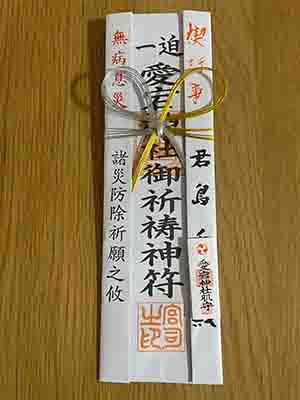 君島
愛宕神社
一迫
愛宕神社御祈祷神符
宮司之印
無病息災
諸災防除祈願之攸